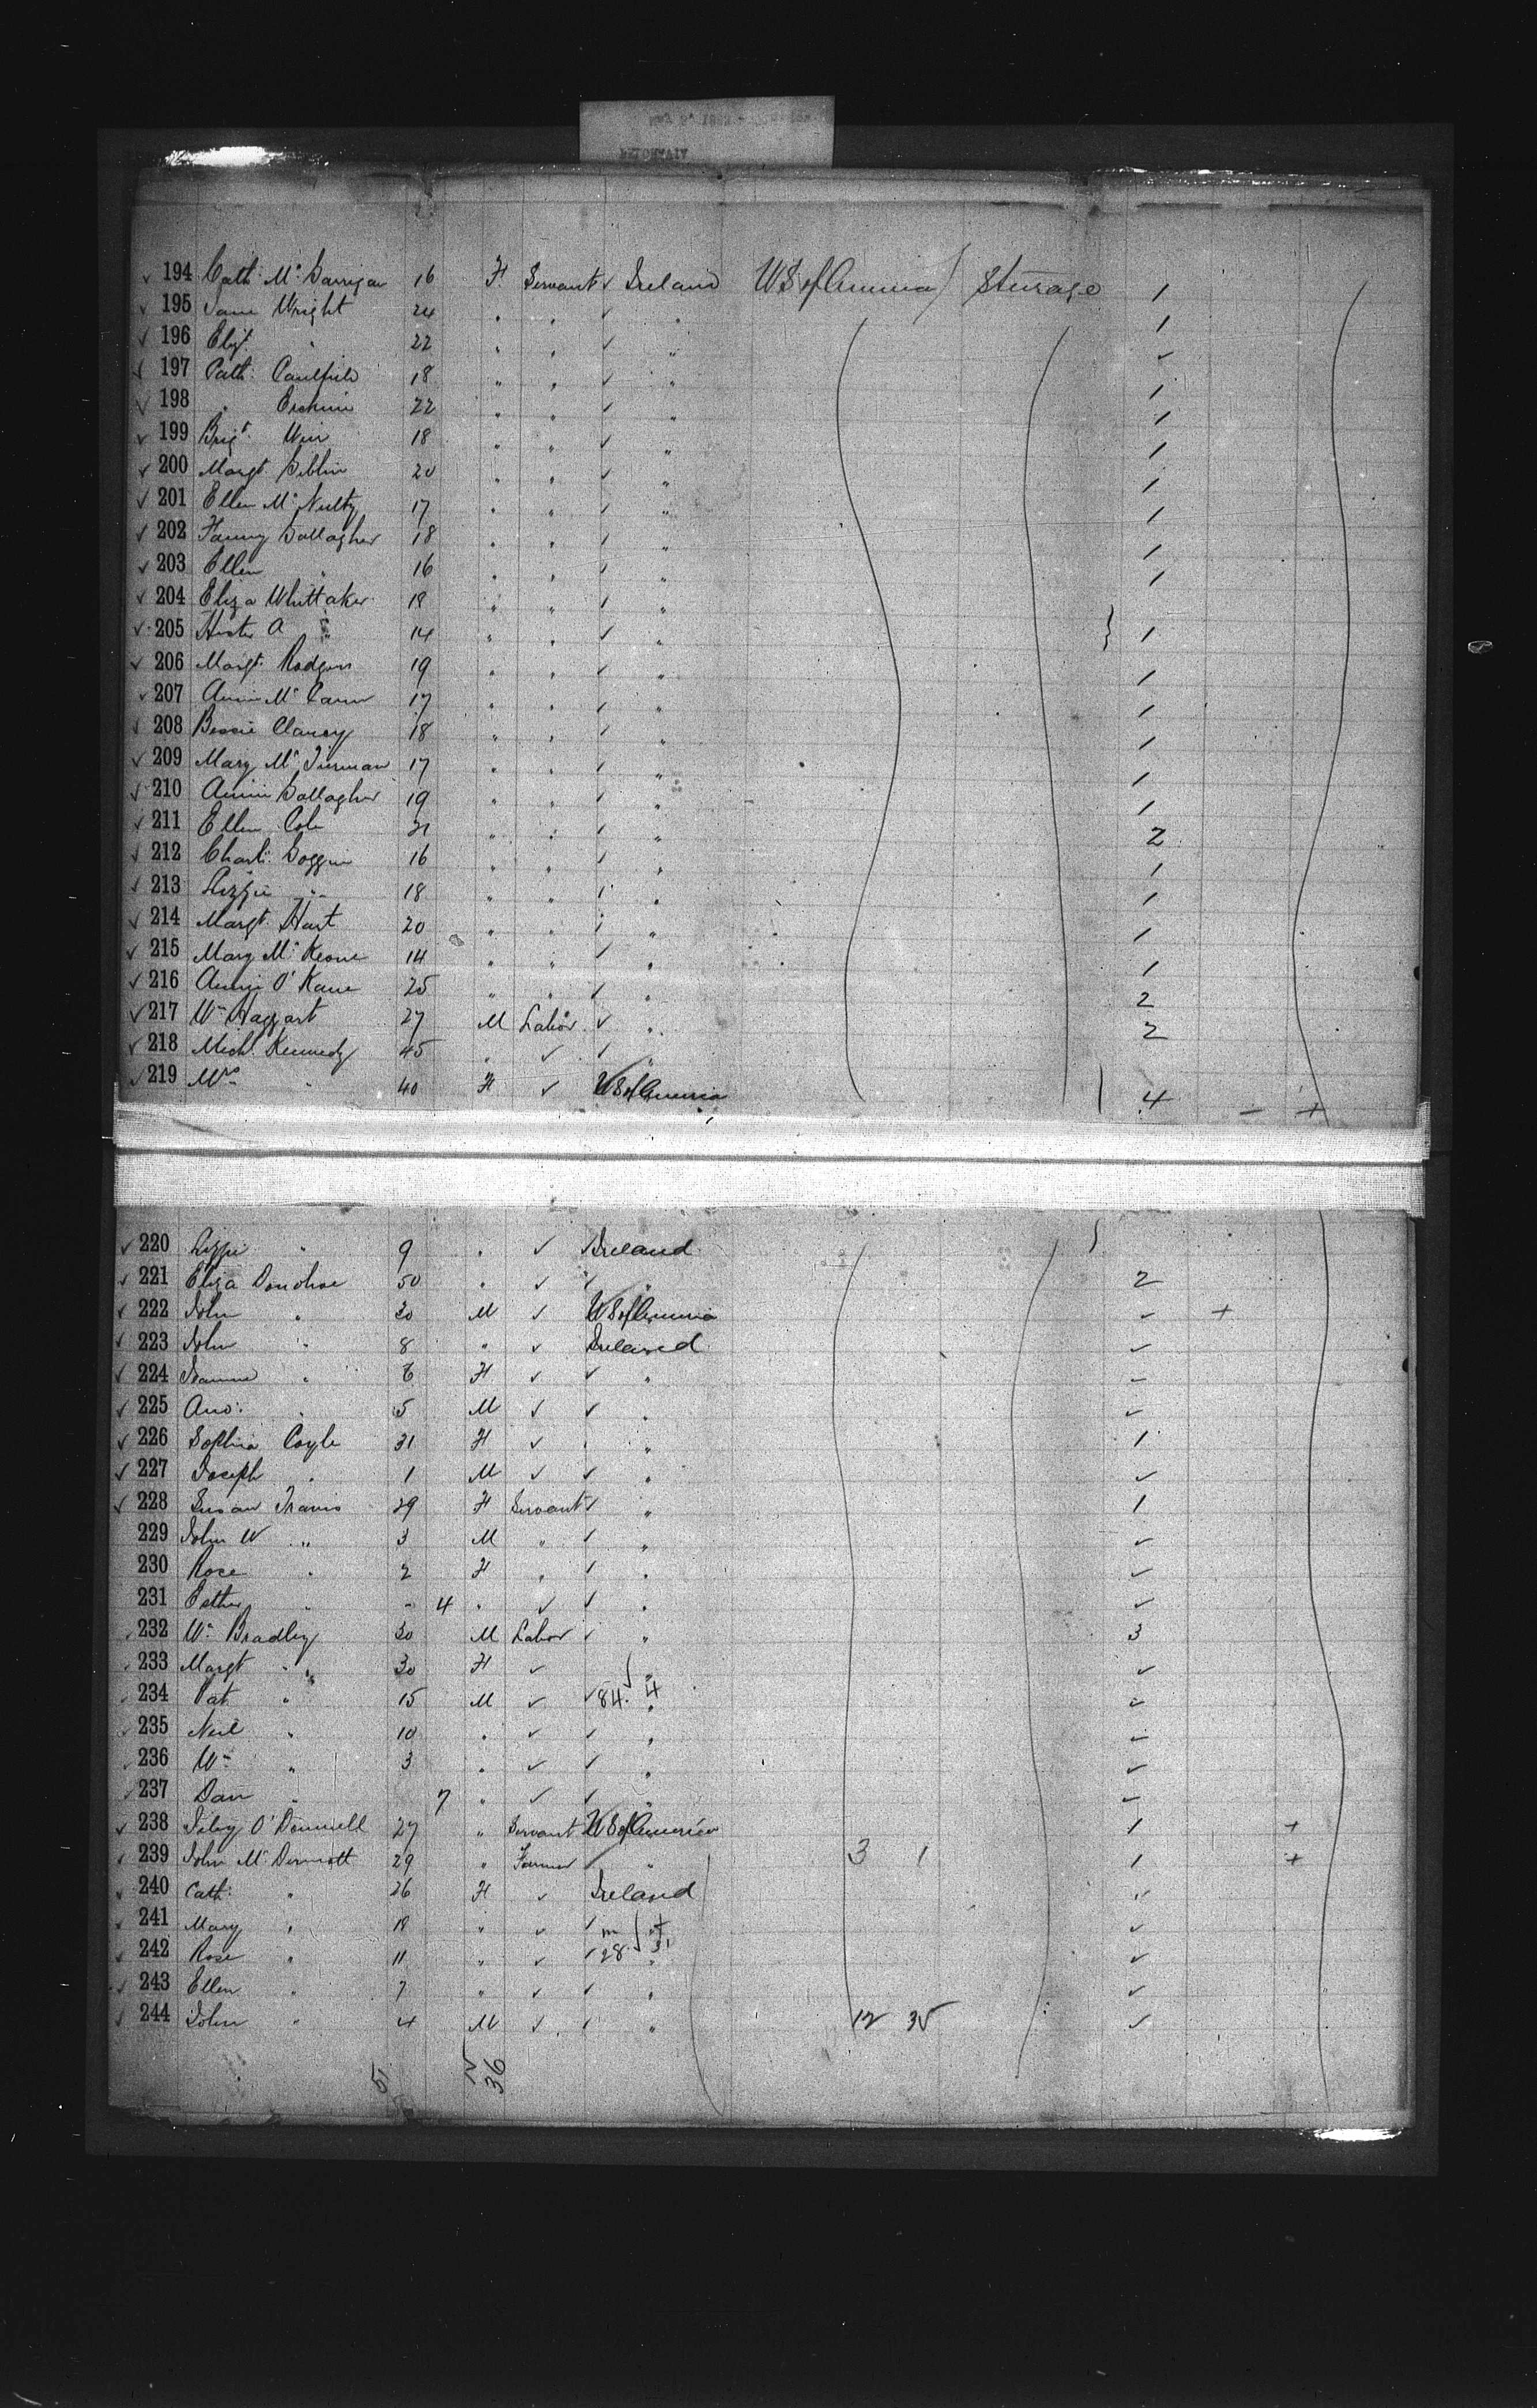 194 Cath. Mc Garrigan 16 F Servant ✓ Ireland U S of America Steerage 1
195 Jane Wright 24 " " ✓ " 1
196 Eliz. " 22 " " ✓ " ✓
197 Cath. Caulfield 18 " " ✓ " 1
198 " Erskine 22 " " ✓ " 1
199 Brigt. Weir 18 " " ✓ " 1
200 Margt. Giblin 20 " " ✓ " 1
201 Ellen Mc Nulty 17 " " ✓ " 1
202 Fanny Gallagher 18 " " ✓ " 1
203 Ellen " 16 " " ✓ " 1
204 Eliza Whittaker 18 " " ✓ "
205 Hester A " 14 " " ✓ " 1
206 Margt. Rodgers 19 " " ✓ " 1
207 Annie Mc Cann 17 " " ✓ " 1
208 Bessie Clancy 18 " " ✓ " 1
209 Mary Mc Tiernan 17 " " ✓ " 1
210 Annie Gallagher 19 " " ✓ " 1
211 Ellen Cole 21 " " ✓ " 2
212 Charl. Goggin 16 " " ✓ " 1
213 Lizzie " 18 " " ✓ " 1
214 Margt. Hart 20 " " ✓ " 1
215 Mary Mc Keone 14 " " ✓ " 1
216 Annie O' Kane 25 " " ✓ " 2
217 Wm Haggart 27 M Labor ✓ " 2
218 Michl. Kennedy 45 " ✓ ✓ "
219 Mrs " 40 F ✓ U S of America 4 - +
220 Lizzie " 9 " ✓ Ireland
221 Eliza Donohoe 50 " ✓ ✓ " 2
222 John " 30 M ✓ U S of America ✓ +
223 John " 8 " ✓ Ireland ✓
224 " 6 F ✓ ✓ " ✓
225 " 5 M ✓ ✓ " ✓
226 Sophia Coyle 31 F ✓ " 1
227 Joseph " 1 M ✓ ✓ " ✓
228 Susan Travis 29 F Servant ✓ " 1
229 John W " 3 M " ✓ " ✓
230 Rose " 2 F " ✓ " ✓
231 Esther " - 4 " ✓ ✓ " ✓
232 Wm Bradley 30 M Labor ✓ " 3
233 Margt " 30 F ✓ " ✓
234 Pat " 15 M ✓ ✓ 84. 4 " ✓
235 Neil " 10 " ✓ ✓ " ✓
236 Wm " 3 " ✓ ✓ " ✓
237 Dan " 7 " ✓ ✓ " ✓
238 O' Donnell 27 " Servant U S of America 1 +
239 John Mc Dermott 29 " Farmer " 3 1 1 +
240 Cath: " 26 F ✓ Ireland ✓
241 Mary " 18 " ✓ ✓ ✓
242 Rose " 11 " ✓ ✓ 28 " ✓
243 Ellen " 7 " ✓ ✓ " ✓
244 John " 4 M ✓ ✓ " 12 35 ✓
51 36